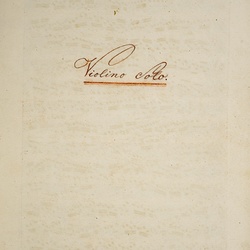 Violino Solo.